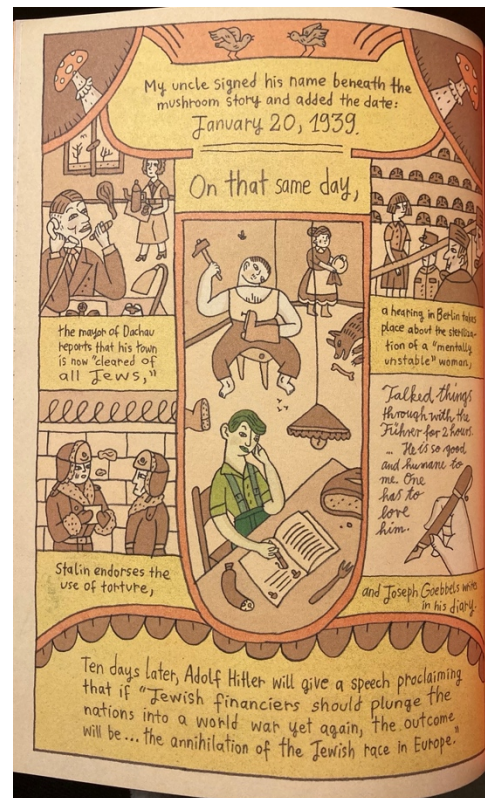 My uncle signed his name beneath the
mushroom story and added the date:
January 20, 1939.
On that same day,
the mayor of Dachau
reports that his town
is now "cleared of
all Jews,"
a hearing in Berlin takes
place about the steriliza-
tion of a "mentally
unstable" woman,
Stalin endorses the
use of torture,
Talked things
through with the
Führer for 2 hours.
... He is so good
and humane to
me. One
has to
love
him.
and Joseph Goebbels writes
in his diary.
Ten days later, Adolf Hitler will give a speech proclaiming
that if "Jewish financiers should plunge the
nations into a world war yet again, the outcome
will be ... the annihilation of the Jewish race in Europe."